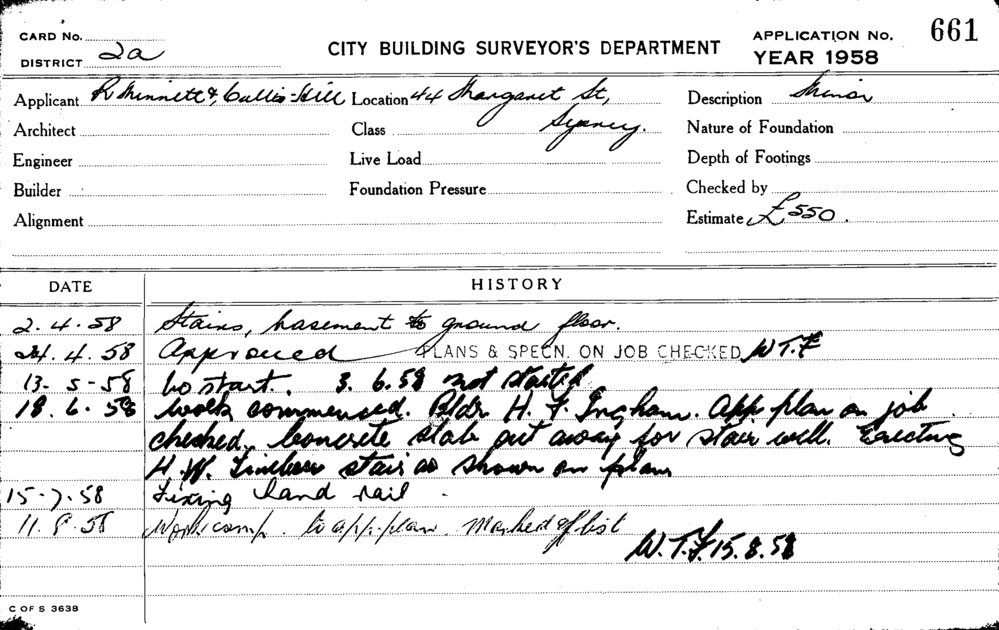 CARD No.
CITY BUILDING SURVEYOR'S DEPARTMENT
APPLICATION No. 661
DISTRICT 2a
YEAR 1958
Applicant R Minnett & Cullis-Hill Location 44 Margaret St, Description Minor
Architect Class Sydney. Nature of Foundation
Engineer Live Load Depth of Footings
Builder Foundation Pressure Checked by
Alignment Estimate £550.
DATE HISTORY
2.4.58 Stairs, basement to ground floor.
24.4.58 Approved PLANS & SPECN. ON JOB CHECKED W.T.F
13-5-58 No start. 3.6.58 not started
18.6.58 Work commenced. Bldr H. F. Ingham. App plan on job
checked. Concrete slab cut away for stair well. Erecting
H.W. Timber stair as shown on plan
15-7.58 Fixing hand rail.
11.8.58 Work comp. to app. plan. Marked off list
W.T.F. 15.8.58
C OF S 3638